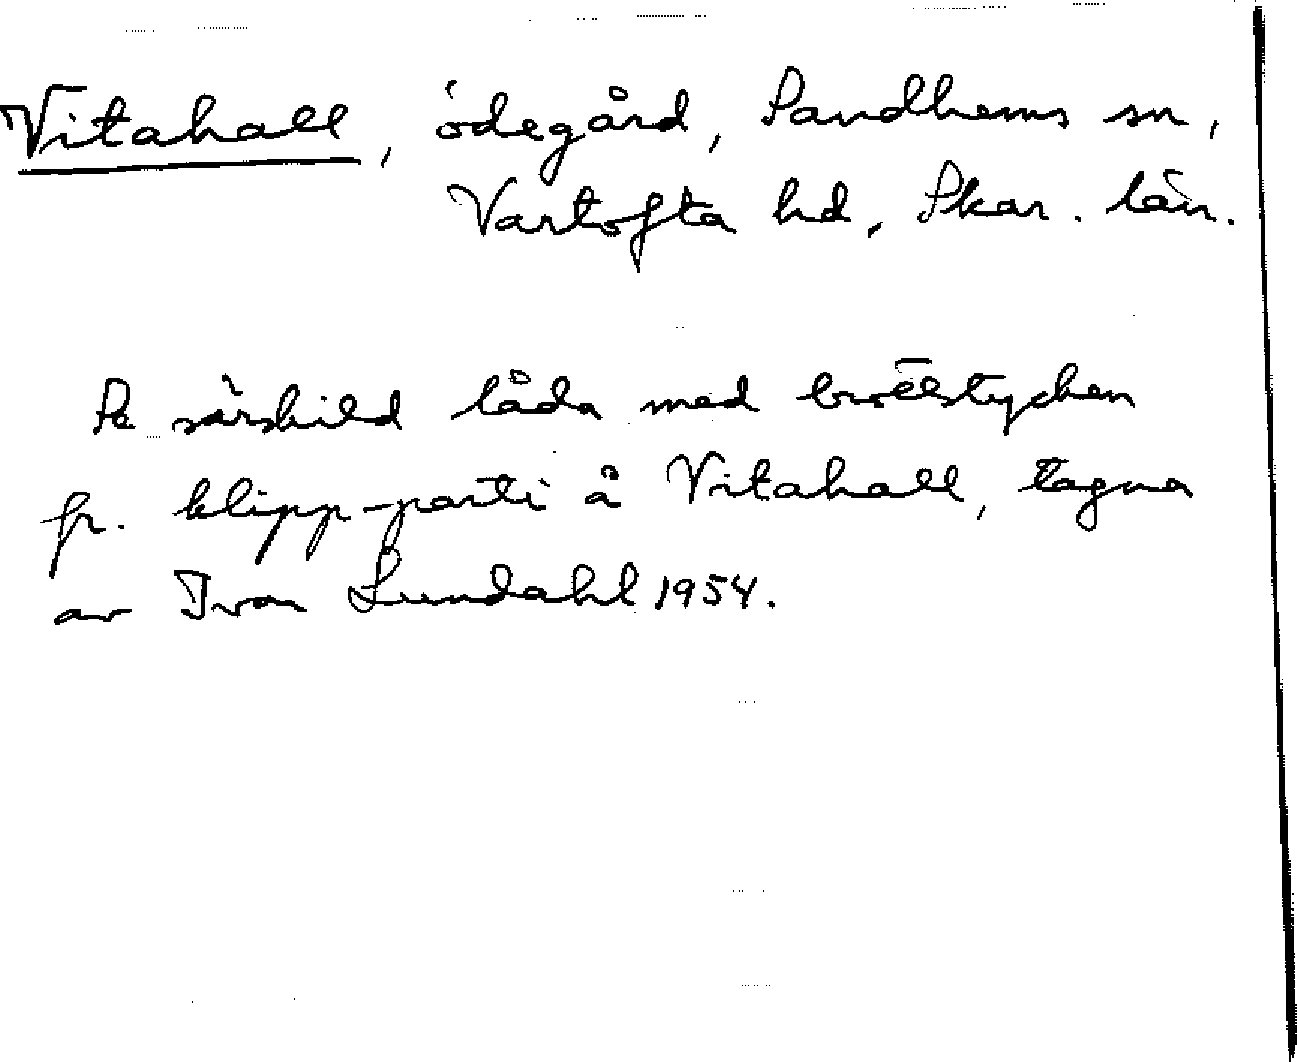 Vitahall, ödegård, Sandhems sn,
Vartofta hd, Skar. län.
Se särskild låda med brottstycken
fr. klipp-parti å Vitahall, tagna
av Ivar Lundahl 1954.